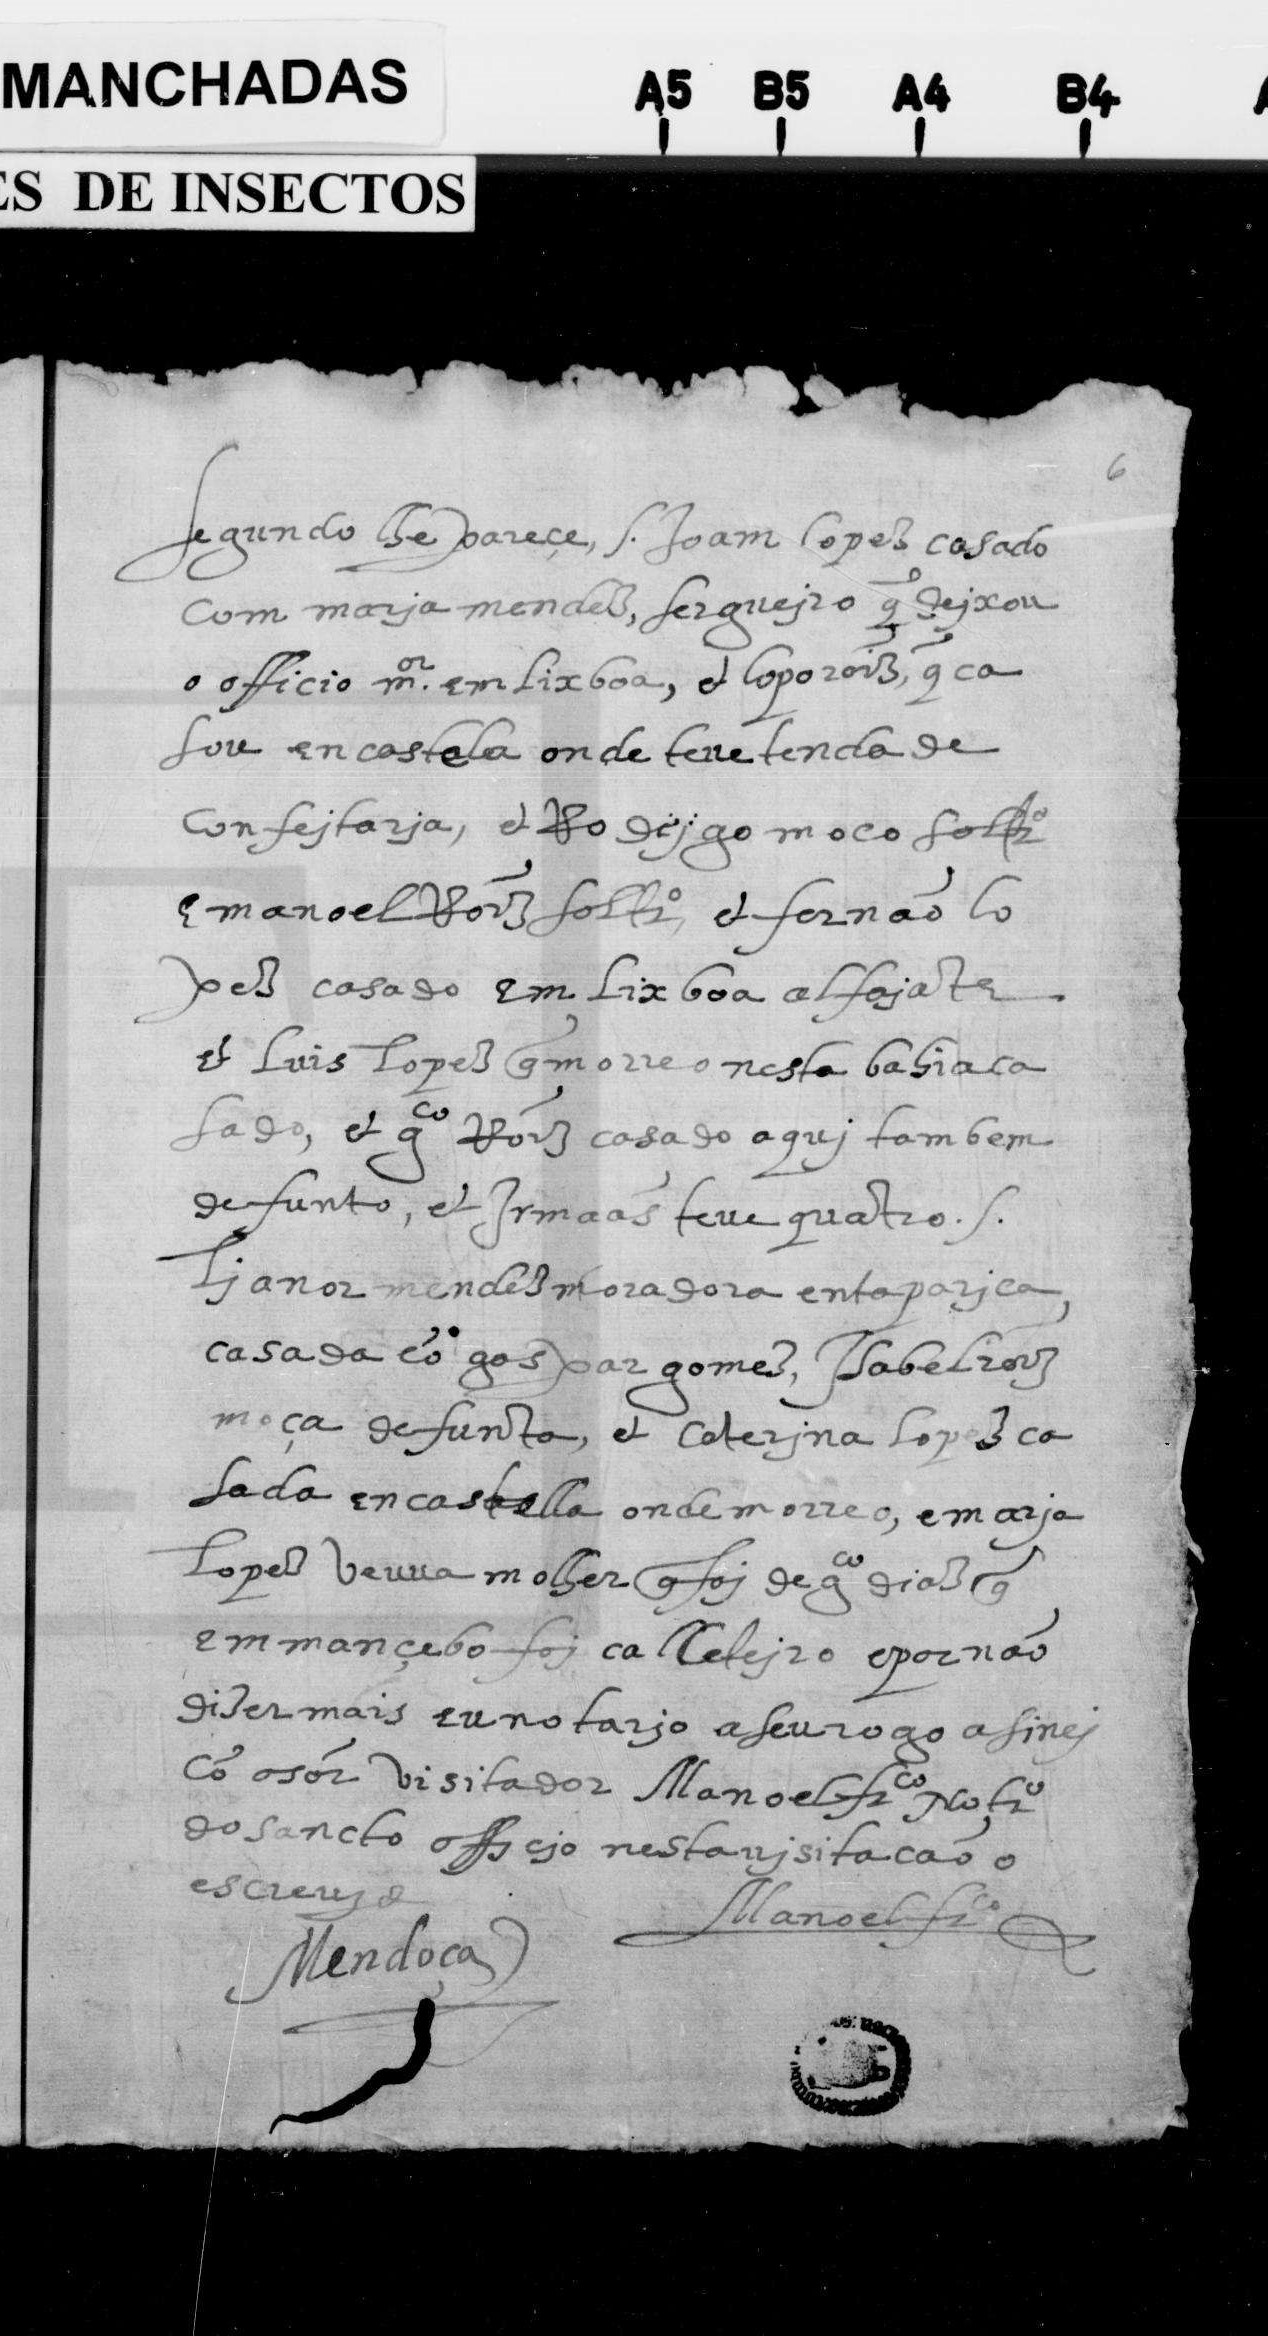 MANCHADAS
A5 B5 A4 B4
ES DE INSECTOS
6
segundo lhe pareçe, s. Joam lopez casado
com marja mendez, serguejro q̃ dejxou
o officio m.or em Lixboa, et lopo roiz, q̃ ca
sou en castela onde teue tenda de
confejtarja, et Rodrjgo moco soltro
E manoel Roiz soltro, et fernão lo
pez casado em Lixboa alfajate
et Luis Lopez q̃ morreo nesta bahia ca
sado, et gco Roiz casado aquj tambem
defunto, et Jrmaãs teue quatro. s.
Ljanor mendez moradora en taparjca,
casada cõ gaspar gomez, Jsabel roiz
moça defunta, et Caterjna lopez ca
sada en castella onde morreo, e marja
Lopez veuua molher q̃ foj de gco diaz q̃
em mançebo foj calcetejro e por não
dizer mais eu notarjo a seu rogo asinej
cõ o sõr visitador Manoel frco Notro
do sancto officjo nesta vjsitacão o
escreuj
Manoel frco
Mendoça